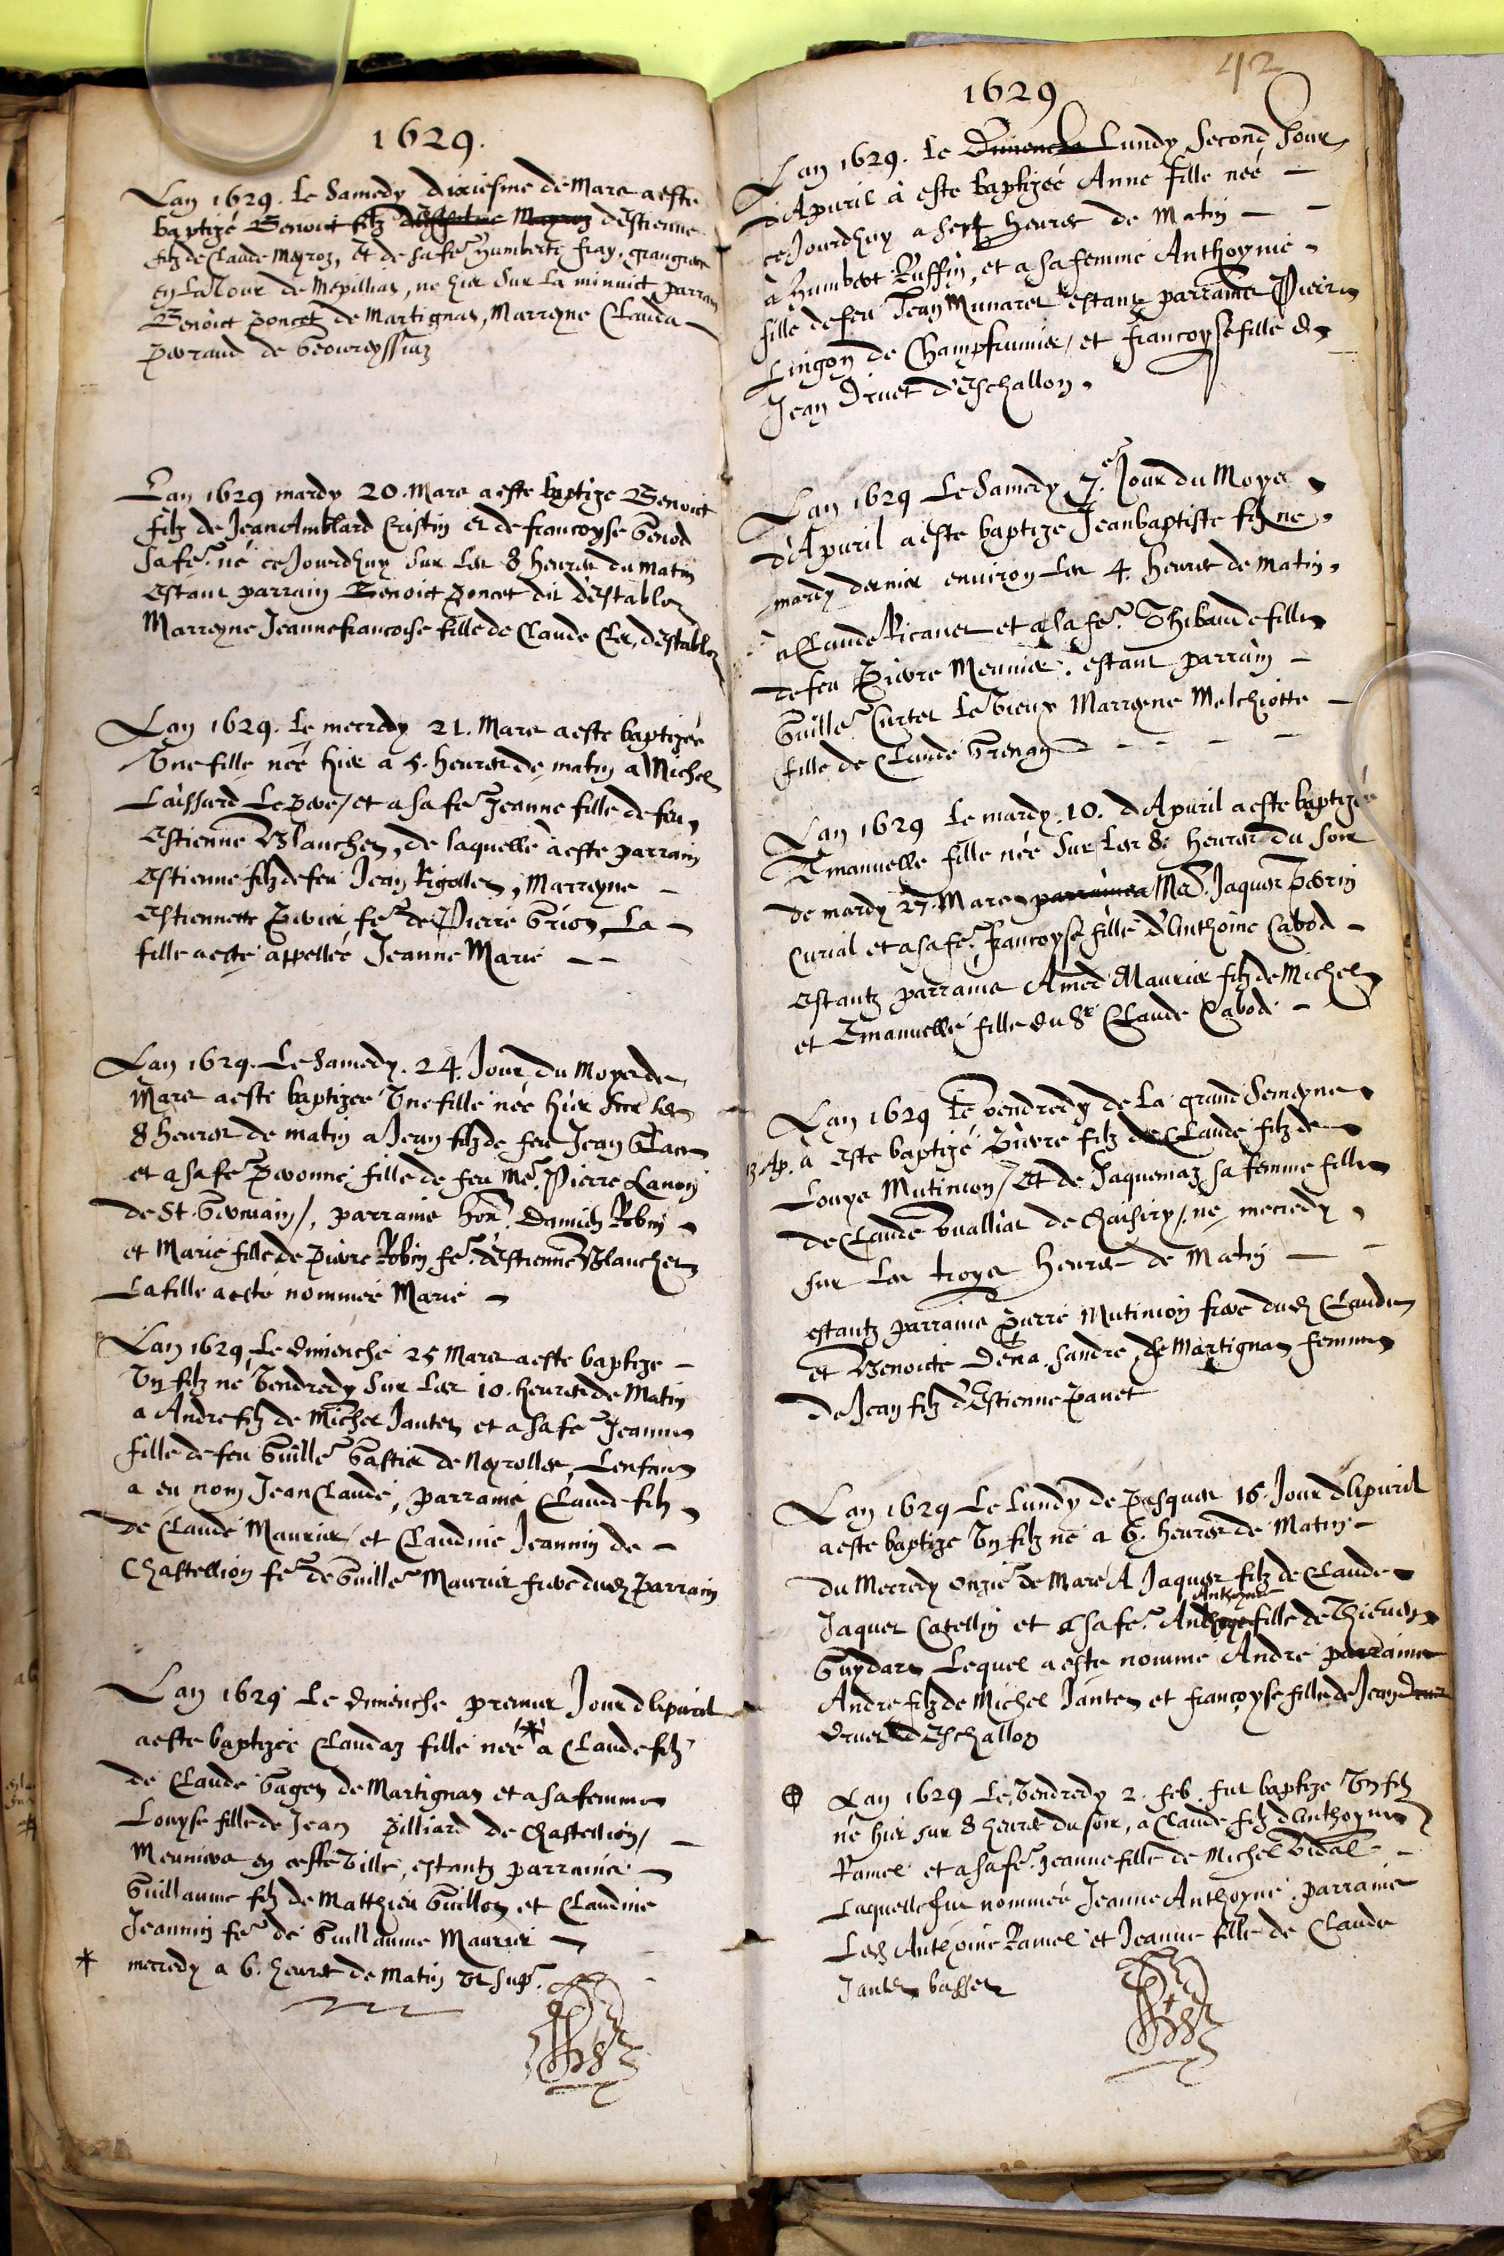 1629.
Lan 1629. Le Samedy dixiesme de Mars a este
baptizé Benoict filz d'Estienne
filz de Claude Meyroz, et de sa fe Humberte fray, grangier
en La Tour de Mepillias, ne hier sur La minuict parrain
Benoict poncet de Martignas, Marreyne Clauda
perraud de Geovreyssiaz
Lan 1629 mardy 20. Mars a este baptize Benoict
filz de Jean Amblard Cristin et de francoyse Genod
sa fe. né ce Jourdhuy sur Les 8 heures du matin
estant parrain Benoict poncet dit destables
Marreyne Jeanne francoise fille de Claude destables
Lan 1629. Le mecredy 21. Mars a este baptizée
Une fille née hier a 5. heures de matin a Michel
Laissard Le pere / et a sa fe Jeanne fille de feu
Estienne Blanchet, de laquelle a este parrain
Estienne filz de feu Jean Rigollet, Marreyne
Estiennette fe de Pierre La
fille a esté appellée Jeanne Marie
Lan 1629. Le Samedy. 24. Jour du Moys de
Mars a este baptizée Une fille née hier sur les
8 heures de matin a Jean filz de feu Jean
et a sa fe Pernonne fille de feu Me. Pierre Lanoy
de St. Germain /, parrains hon. Damien Robin
et Marie fille de pierre Robin fe. d'estienne Blanchet
La fille a esté nommée Marie
Lan 1629 Le dimenche 25 Mars a este baptize
Un filz ne Vendredy sur Les 10. heures de Matin
a Andre filz de Michel Jantet et a sa fe Jeanne
fille de feu Guille Gastier de Neyrolles, Lenfant
a eu nom Jean Claude, parrains Claude filz
de Claude Maurier / et Claudine Jeannin de
Chastellion fe de Guille Maurier frere dud parrain
Lan 1629 Le dimenche premier Jour dApuril
a este baptizée Claudaz fille née * a Claude filz
de Claude Gaget de Martignas et a sa femme
Louyse fille de Jean pilliard de Chastellion /
Meuniers en ceste Ville, estantz parrains
Guillaume filz de Matthieu Guillot et Claudine
Jeannin fe de Guillaume Maurier
* mecredy a 6. heures de matin Ut sup.
42
1629
Lan 1629. Le Dimenche Lundy Second Jour
d'Apuril à este baptizée Anne fille née
ce Jourdhuy a sept heures de Matin
à Humbert Ruffin, et a sa femme Anthoyme
fille de feu Jean Munaret estantz parrains Pierre
Lingon de Champfromier / et francoyse fille de
Jean Druet d'Eschallon.
Lan 1629 Le Samedy 7.e Jour du Moys
d'Apuril a este baptize Jean baptiste filz ne
mardy dernier environ Les 4. heures de matin
a Claude Ricanet et a sa fe. Thibaude fille
de feu Pierre Meunier. estant parrain
Guille Curtet Le Vieux Marreyne Melchiotte
fille de Claude Grenay
Lan 1629 Le mardy. 10. d'Apuril a este baptizée
Emanuelle fille née sur Les 8. heures du soir
de mardy 27. Mars parrains a Me. Jaques Perrin
Curial et a sa fe. francoyse fille d'Anthoine Cabod
estantz parrains Amed Maurier filz de Michel
et Emanuelle fille du Sr. Claude Cabod
Lan 1629 Le Vendredy de La grand Semeyne
13 Ap. a este baptizé Pierre filz de Claude filz de
Louys Mutinion / et de Jaquemaz sa femme fille
de Claude Vualliat de Chaisiry /. né mecredy
sur Les troys heures de Matin
estantz parrains Pierre Mutinion frere dud Claude
et Benoicte de Martignas femme
de Jean filz d'Estienne panet
Lan 1629 Le Lundy de pasques 16 Jour dApuril
a este baptize Un filz né a 6. heures de Matin
du Mecredy onzie de Mars A Jaques filz de Claude
Anthoyne
Jaques Catellin et a sa fe. fille de Thieven
Guydard Lequel a este nommé Andre parrains
Andre filz de Michel Jantet et francoyse fille de Jean
Druet d'Eschallon
⊕ Lan 1629 Le Vendredy 2. feb. fut baptize Un filz
né hier sur 8 heures du soir, a Claude filz d'Anthoyne
Ramel et a sa fe. Jeanne fille de Michel Vidal
Laquelle fut nommée Jeanne Anthoyne. parrains
Led Anthoine Ramel et Jeanne fille de Claude
Jantet basset